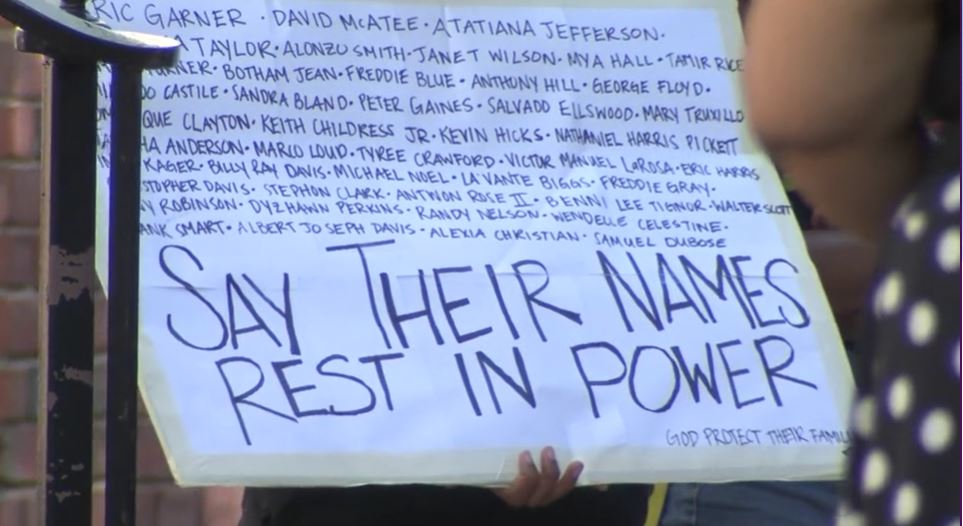 RIC GARNER · DAVID McATEE · ATATIANA JEFFERSON ·
A TAYLOR · ALONZO SMITH · JANET WILSON · MYA HALL · TAMIR RICE
BOTHAM JEAN · FREDDIE BLUE · ANTHONY HILL · GEORGE FLOYD ·
DO CASTILE · SANDRA BLAND · PETER GAINES · SALVADO ELLSWOOD · MARY TRUXILLO
QUE CLAYTON · KEITH CHILDRESS JR · KEVIN HICKS · NATHANIEL HARRIS PICKETT
HA ANDERSON · MARCO LOUD · TYREE CRAWFORD · VICTOR MANUEL LAROSA · ERIC HARRIS
KAGER · BILLY RAY DAVIS · MICHAEL NOEL · LAVANTE BIGGS · FREDDIE GRAY ·
STOPHER DAVIS · STEPHON CLARK · ANTWON ROSE II · BENNI LEE TIGNOR · WALTER SCOTT
Y ROBINSON · DYZHAWN PERKINS · RANDY NELSON · WENDELLE CELESTINE ·
ANK SMART · ALBERT JOSEPH DAVIS · ALEXIA CHRISTIAN · SAMUEL DUBOSE
SAY THEIR NAMES
REST IN POWER
GOD PROTECT THEIR FAMIL